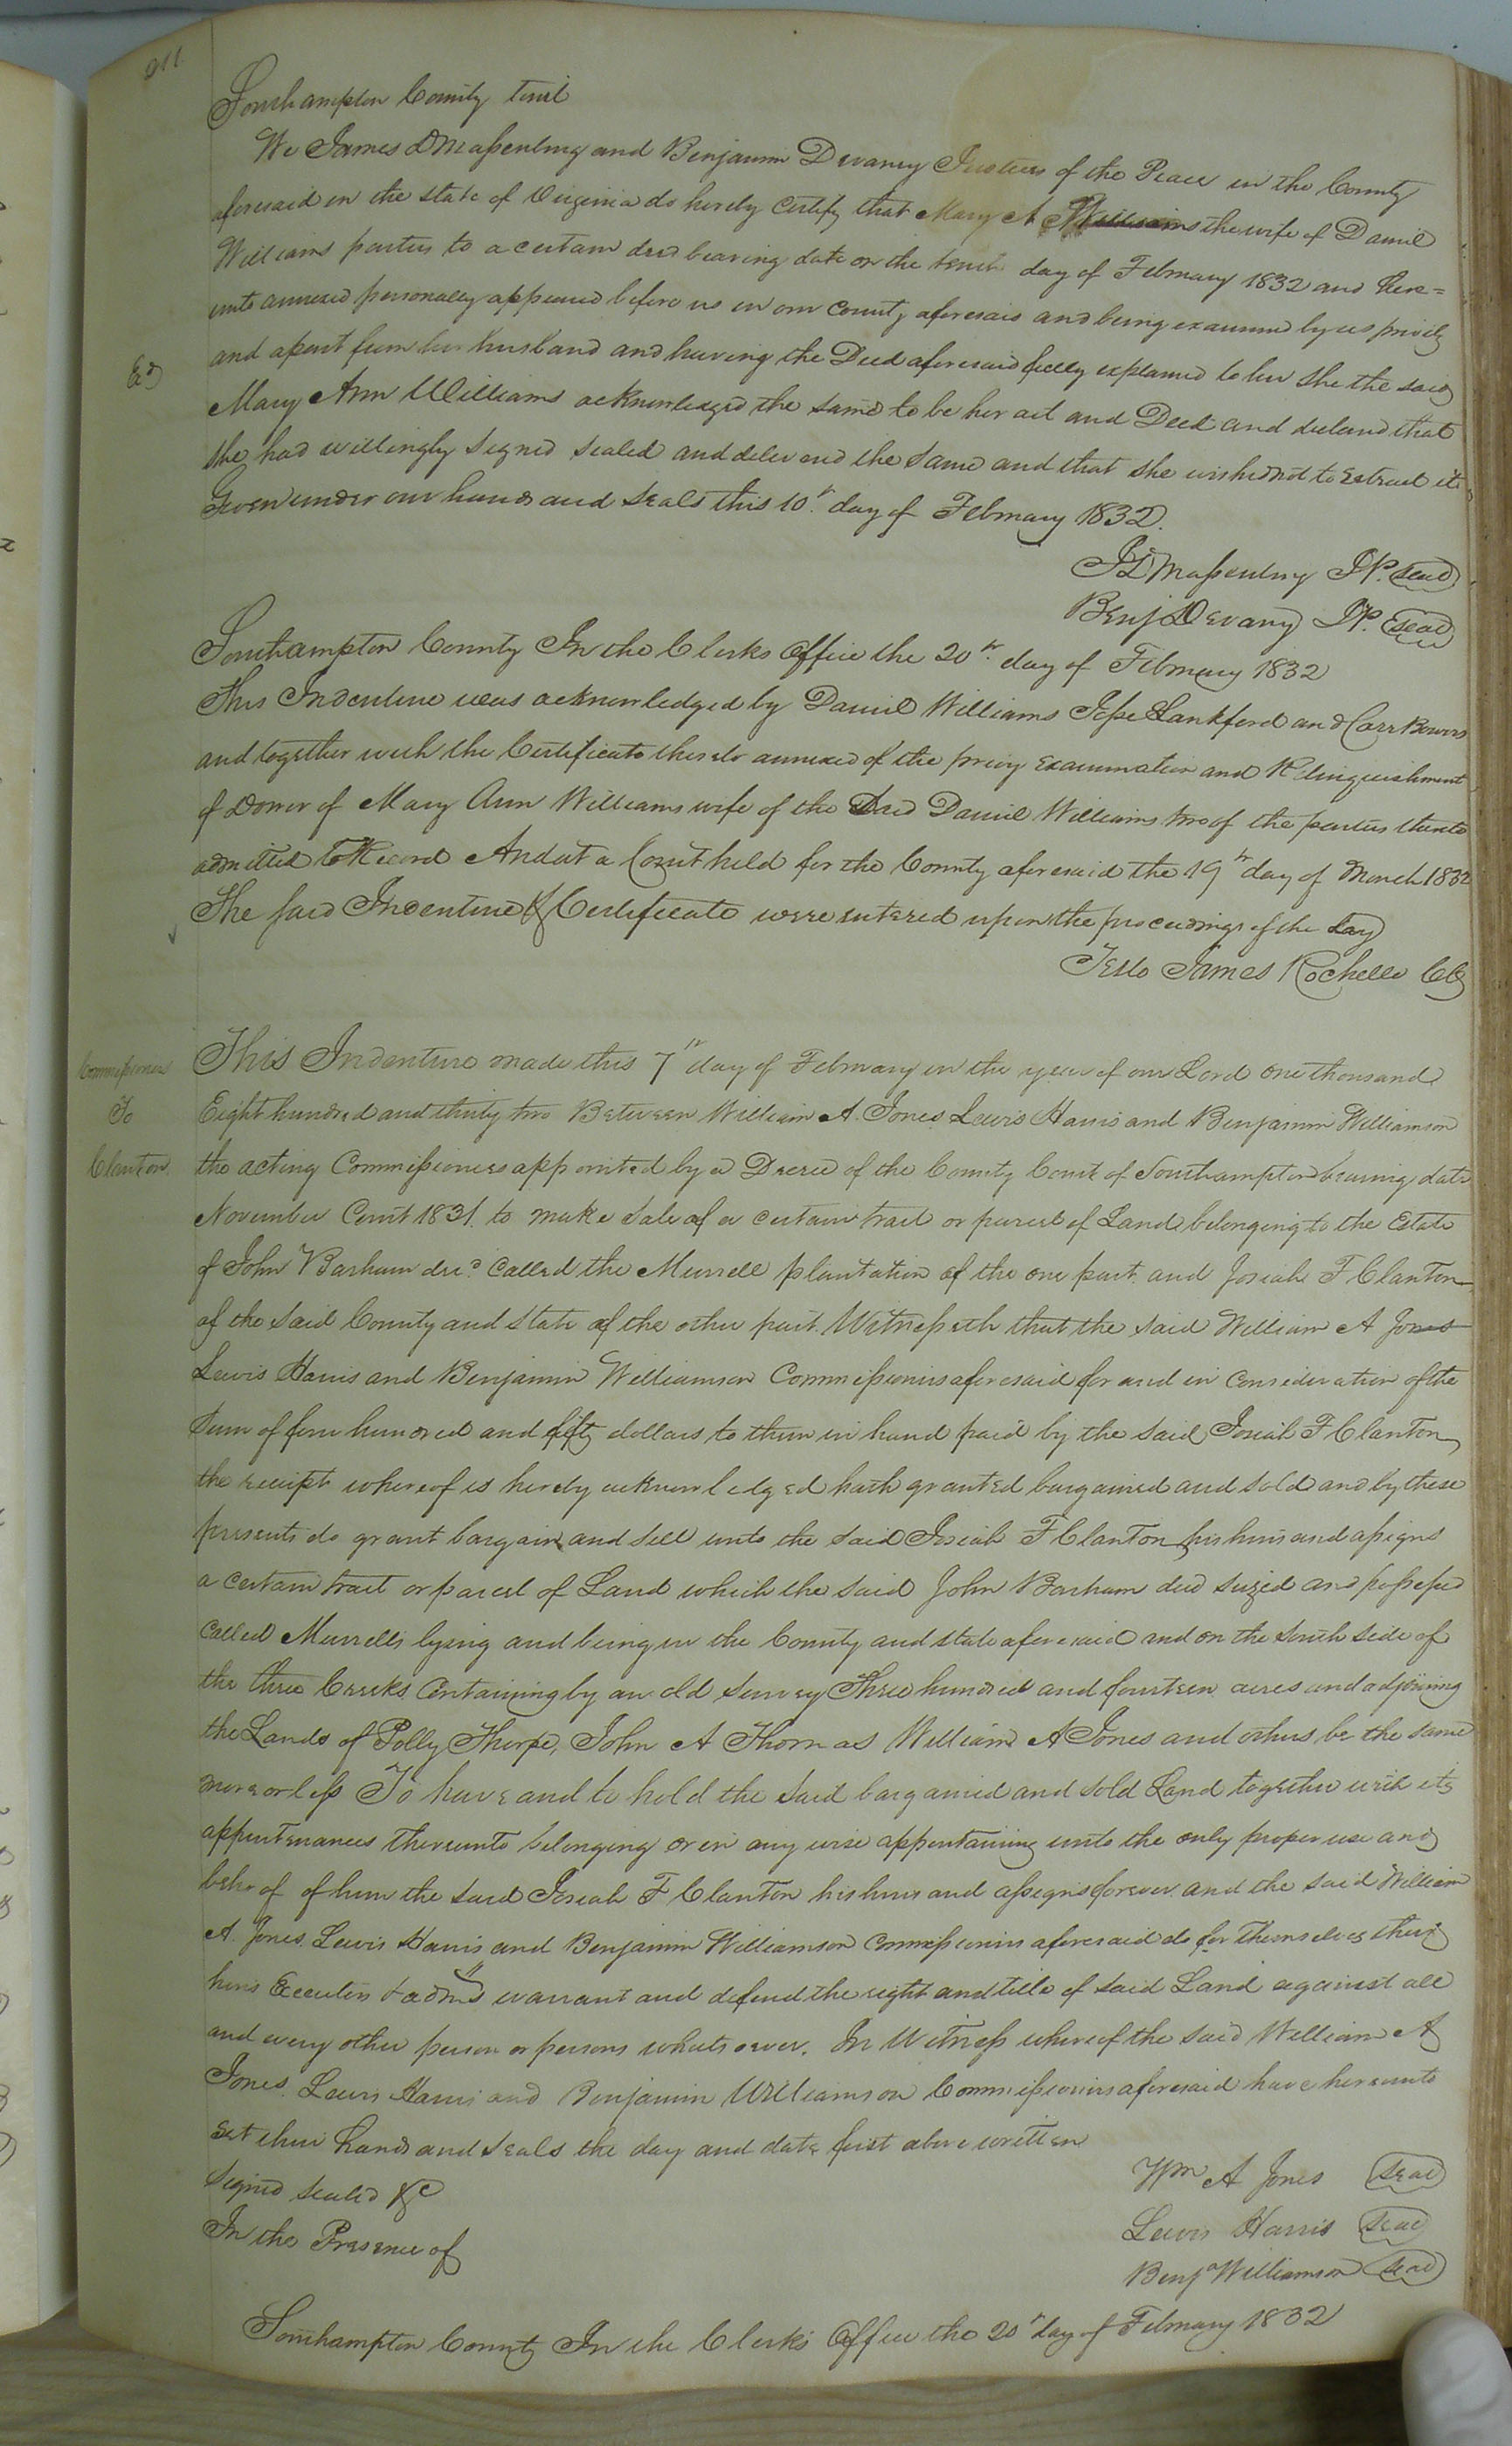 Southampton County towit
We James D Massenburg and Benjamin Devaney Justices of the Peace in the County
aforesaid in the state of Virginia do hereby certify that Mary A Williams the wife of Daniel
Williams parties to a certain deed bearing date on the tenth day of February 1832 and here=
unto annexed personally appeared before us in our County aforesaid and being examined by us privily
and apart from her husband and having the Deed aforesaid fully explained to her she the said
Exd
Mary Ann Williams acknowledged the same to be her act and Deed and declared that
she had willingly signed sealed and delivered the same and that she wished not to retract it
Given under our hands and seals this 10th day of February 1832.
JD Massenburg J.P. Seal
Benj Devany J.P. Seal
Southampton County In the Clerks Office the 20th day of February 1832
This Indenture was acknowledged by Daniel Williams Jesse Lankford and Carr Bowers
and together with the Certificate thereto annexed of the privy examination and Relinquishment
of Dower of Mary Ann Williams wife of the said Daniel Williams two of the parties thereto
admitted to Record And at a Court held for the County aforesaid the 19th day of March 1832
The said Indenture & Certificate were entered upon the proceedings of the day
Teste James Rochelle CC
Commissioners
To
Clanton
This Indenture made this 7th day of February in the year of our Lord one thousand
Eight hundred and thirty two Between William A. Jones Lewis Harris and Benjamin Williamson
the acting Commissioners appointed by a Decree of the County Court of Southampton bearing date
November Court 1831. to make sale of a certain tract or parcel of Land belonging to the Estate
of John Barham decd. Called the Murrell plantation of the one part and Josiah F Clanton
of the said County and State of the other part. Witnesseth that the said William A Jones
Lewis Harris and Benjamin Williamson Commissioners aforesaid for and in consideration of the
Sum of four hundred and fifty dollars to them in hand paid by the said Josiah F Clanton
the receipt whereof is hereby acknowledged hath granted bargained and sold and by these
presents do grant bargain and sell unto the said Josiah F Clanton his heirs and assigns
a certain tract or parcel of Land which the said John Barham died seized and possessed
called Murrells lying and being in the County and state aforesaid and on the South side of
the three Creeks Containing by an old survey Three hundred and fourteen acres and adjoining
the Lands of Polly Thorpe, John A Thomas William A Jones and others be the same
more or less To have and to hold the said bargained and sold Land together with its
appurtenances thereunto belonging or in any wise appertaining unto the only proper use and
behoof of him the said Josiah F Clanton his heirs and assigns forever and the said William
A. Jones. Lewis Harris and Benjamin Williamson commissioners aforesaid do for themselves their
heirs Executors & adms warrant and defend the right and title of said Land against all
and every other person or persons whatsoever. In Witness whereof the said William A
Jones. Lewis Harris and Benjamin Williamson Commissioners aforesaid have hereunto
set their hands and seals the day and date first above written
signed sealed &c
In the Presence of
Wm A Jones Seal
Lewis Harris Seal
Benja Williamson Seal
Southampton County In the Clerk's Office the 20th day of February 1832